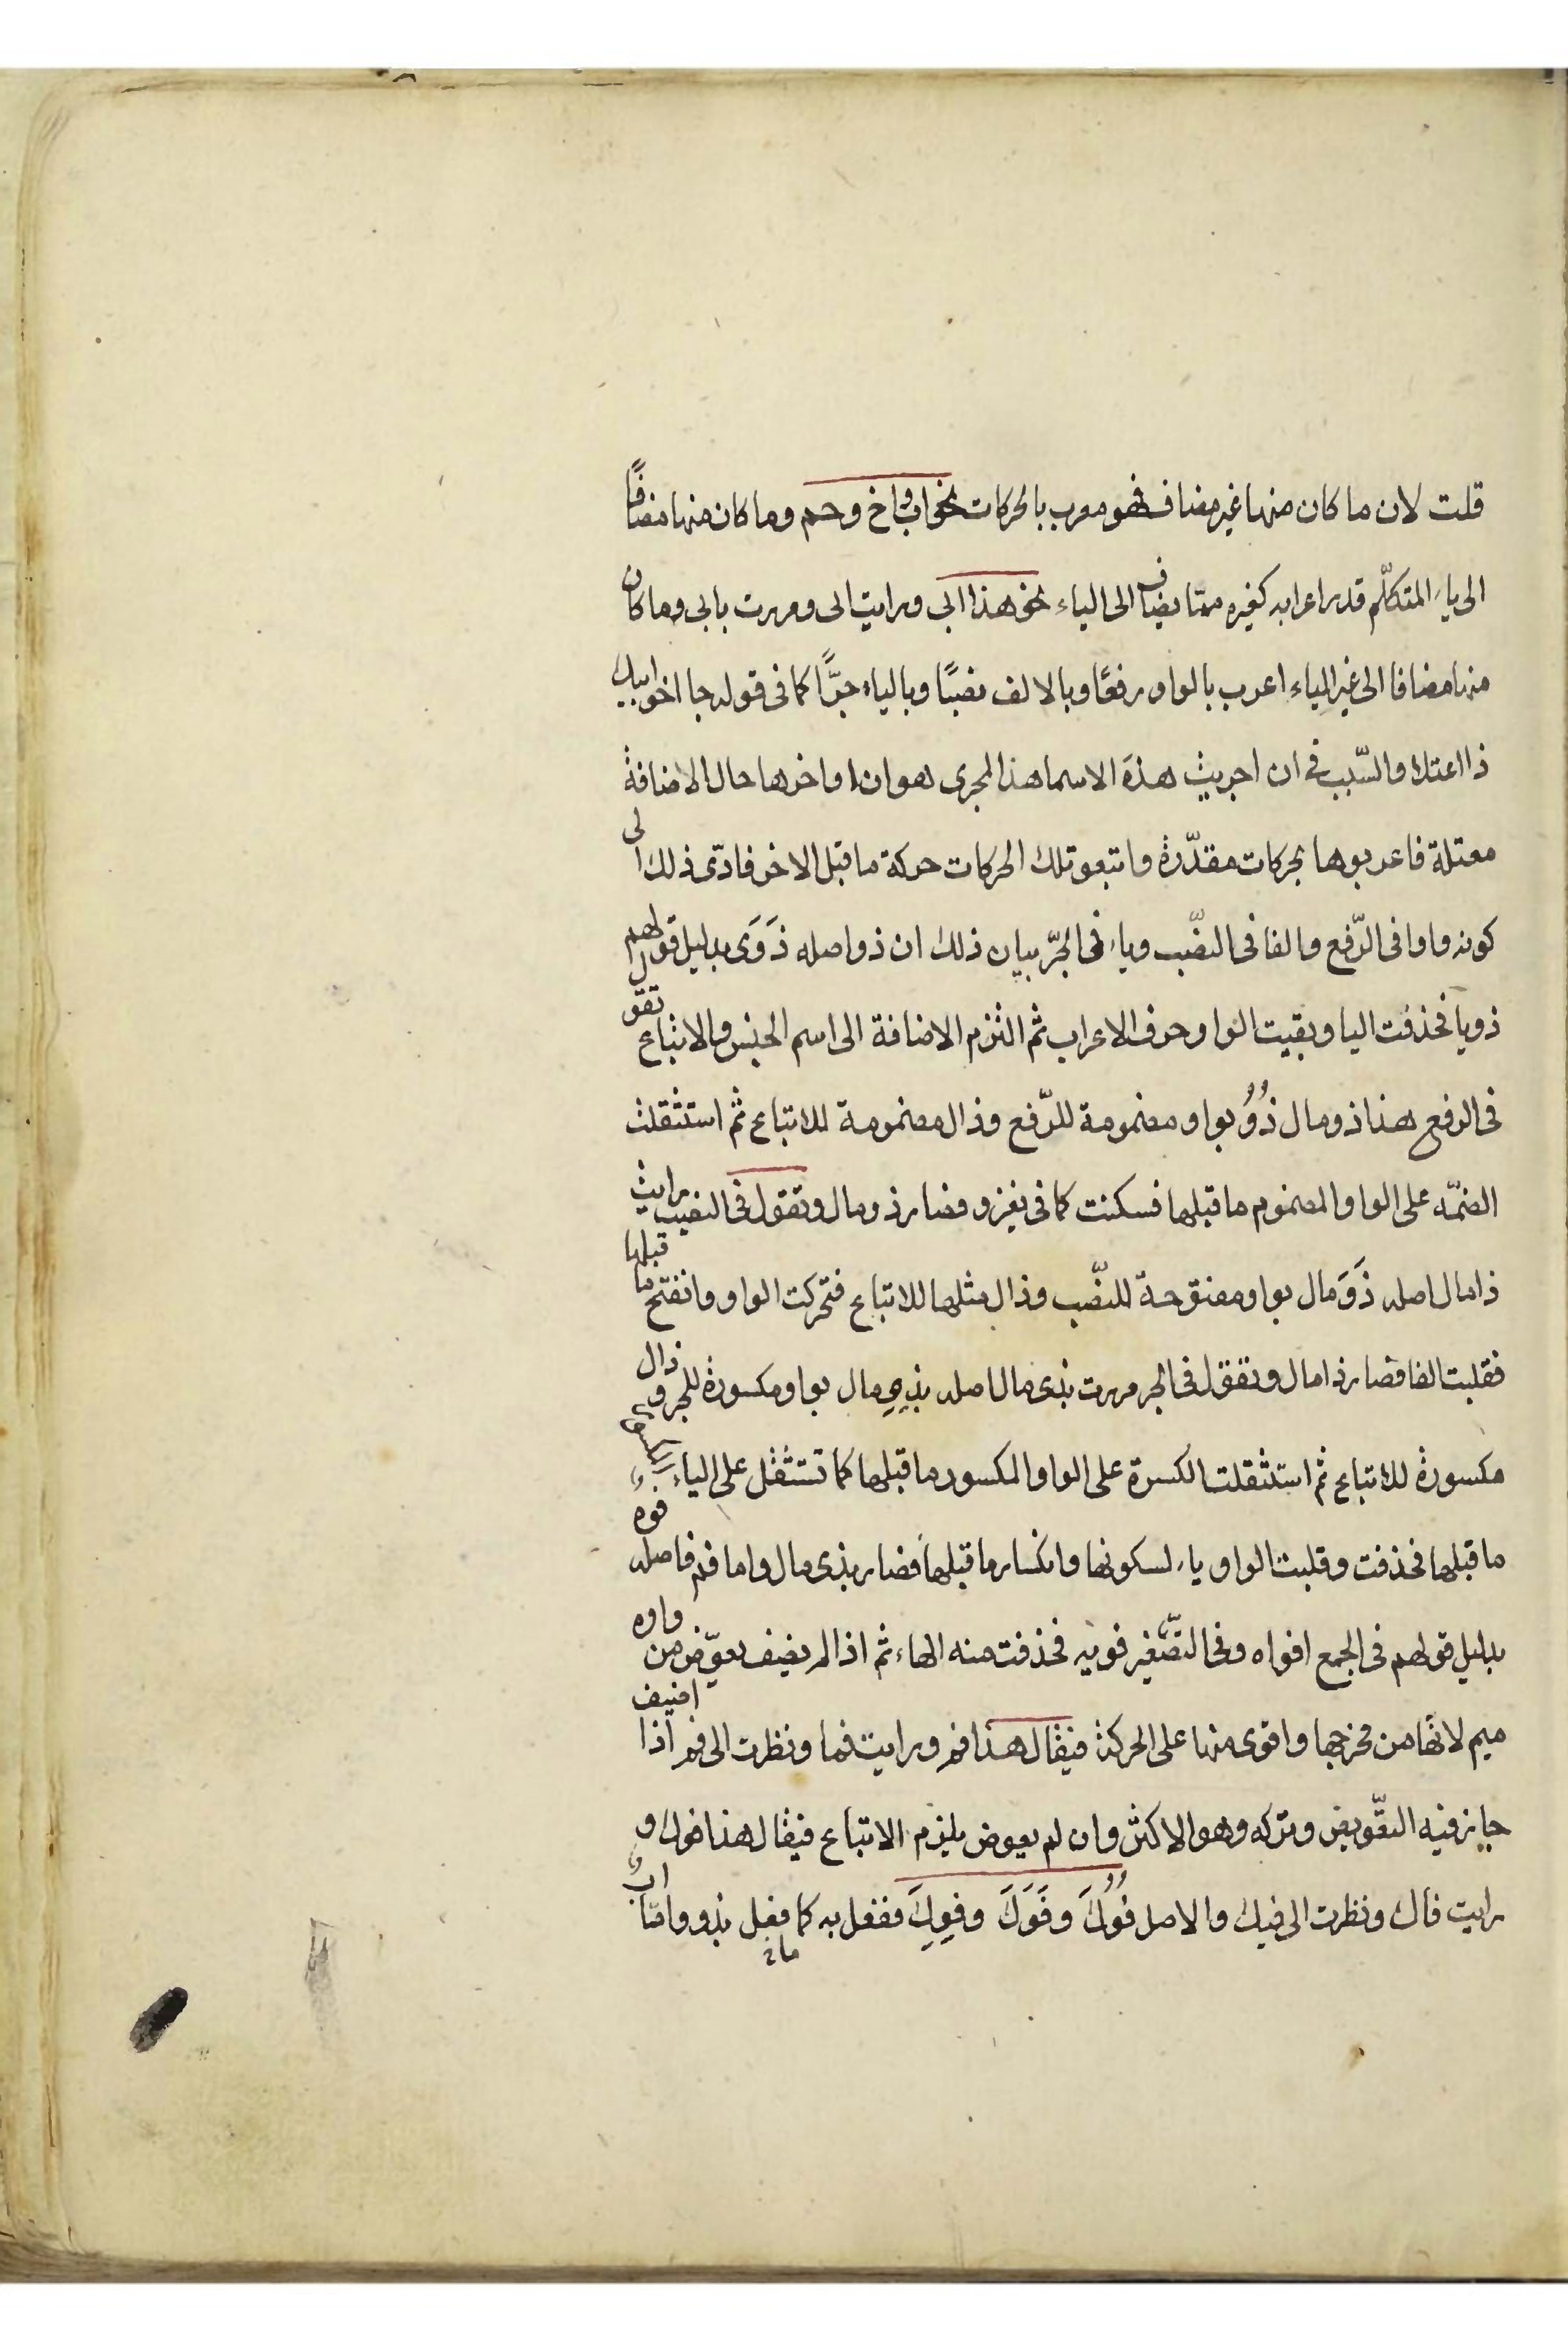 قلت لان ما كان منها غير مضاف فهو معرب بالحركات نحو اب واخ وحم وما كان منها مضافًا
الى ياء المتكلّم قدر اعرابه كغيره ممّا يضاف الى الياء نحو هذا ابى ورايت ابى ومررت بابى وما كان
منها مضافا الى غير الياء اعرب بالواو رفعًا وبالالف نصبًا وبالياء جرًّا كما فى قوله جا اخو ابيك
ذا اعتلا والسّبب فى ان اجريت هذه الاسما هذا المجرى هو ان اواخرها حال الاضافة
معتلة فاعربوها بحركات مقدّرة واتبعو تلك الحركات حركة ما قبل الاخر فادّى ذلك الى
كونه واوا فى الرّفع والفا فى النصّب وياء فى الجرّ بيان ذلك ان ذو اصله ذَوَى بدليل قولهم
ذويا فحذفت اليا وبقيت الواو حرف الاعراب ثم التزم الاضافة الى اسم الجنس والاتباع تقول
فى الرفع هذا ذو مال ذُوُ بواو مضمومة للرّفع وذال مضمومة للاتباع ثم استثقلت
الضمّة على الواو المضموم ما قبلها فسكنت كما فى يغزو فصار ذو مال وتقول فى النصب رايت
ذا مال اصله ذَوَ مال بواو مفتوحة للنصّب وذال مثلها للاتباع فتحركت الواو وانفتح ما قبلها
فقلبت الفا فصار ذا مال وتقول فى الجر مررت بذى مال اصله بذِوِ مال بواو مكسورة للجر وذال
مكسورة للاتباع ثم استثقلت الكسرة على الواو المكسور ما قبلها كما تستثقل على الياء المكسور
ما قبلها فحذفت وقلبت الواو ياء لسكونها وانكسار ما قبلها فصار بذى مال واما فم فاصله فوه
بدليل قولهم فى الجمع افواه وفى التصّغير فويه فحذفت منه الهاء ثم اذا لم يضيف يعوّض من واوه
ميم لانّها من مخرجها واقوى منها على الحركة فيقال هذا فم ورايت فما ونظرت الى فم اذا اضيف
جايز فيه التعّويض وتركه وهو الاكثر وان لم يعوض يلزم الاتباع فيقال هذا فوك و
رايت فاك ونظرت الى فيك والاصل فُوُكَ وفَوَكَ وفِوِكَ ففعل به كما فعل بذو وامّا ابٌ
ما